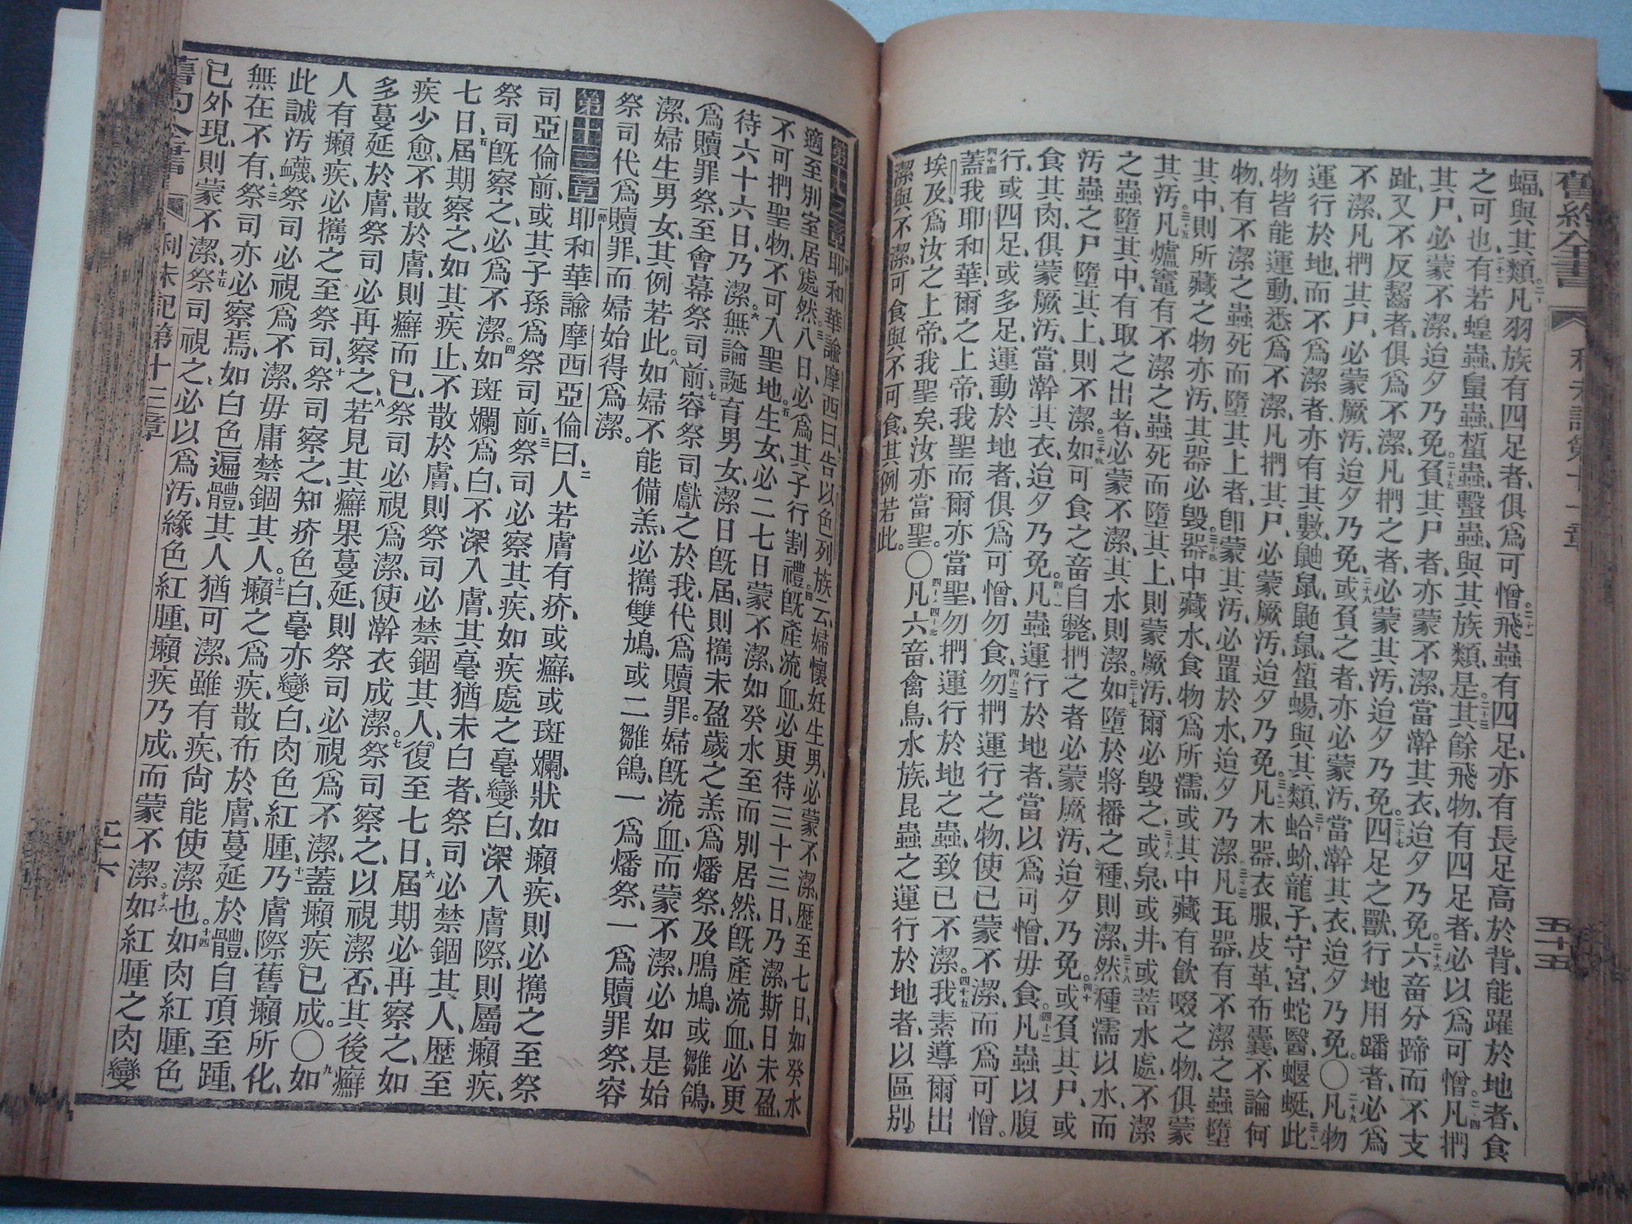 舊約全書 利未記第十一章 五十五
蝠、與其類。凡羽族有四足者、俱爲可憎。飛蟲有四足、亦有長足高於背、能躍於地者、食
之可也、有若蝗蟲、螽蟲、蜇蟲、蠥蟲、與其族類。是其餘飛物、有四足者、必以爲可憎。凡捫
其尸、必蒙不潔、迨夕乃免。負其尸者、亦蒙不潔、當澣其衣、迨夕乃免。六畜分蹄而不支
趾、又不反齧者、俱爲不潔、凡捫之者、必蒙其汚、迨夕乃免。四足之獸、行地用蹯者、必爲
不潔、凡捫其尸、必蒙厥汚、迨夕乃免、或負之者、亦必蒙汚、當澣其衣、迨夕乃免。〇凡物
運行於地、而不爲潔者、亦有其數、鼬鼠、鼫鼠、蜥蜴、與其類、蛤蚧、龍子、守宮、蛇醫、蝘蜓、此
物皆能運動、悉爲不潔、凡捫其尸、必蒙厥汚、迨夕乃免。凡木器、衣服、皮革、布囊、不論何
物、有不潔之蟲死而墮其上者、卽蒙其汚、必置於水、迨夕乃潔。凡瓦器、有不潔之蟲墮
其中、則所藏之物亦汚、其器必毀。器中藏水、食物爲所濡、或其中藏有飮啜之物、俱蒙
其汚。凡爐竈有不潔之蟲死而墮其上、則蒙厥汚、爾必毀之。或泉、或井、或蓄水處、不潔
之蟲墮其中、有取之出者、必蒙不潔、其水則潔。如墮於將播之種、則潔、然種濡以水、而
汚蟲之尸墮其上、則不潔。如可食之畜自斃、捫之者必蒙厥汚、迨夕乃免。或負其尸、或
食其肉、俱蒙厥汚、當澣其衣、迨夕乃免。凡蟲運行於地者、當以爲可憎、毋食。凡蟲以腹
行、或四足、或多足、運動於地者、俱爲可憎、勿食。勿捫運行之物、使己蒙不潔、而爲可憎。
蓋我耶和華、爾之上帝、我聖而爾亦當聖、勿捫運行於地之蟲、致己不潔。我素導爾出
埃及、爲汝之上帝、我聖矣、汝亦當聖。〇凡六畜、禽鳥、水族、昆蟲之運行於地者、以區別
潔與不潔、可食與不可食、其例若此。
第十二章 耶和華諭摩西曰、告以色列族云、婦懷妊生男、必蒙不潔、歷至七日、如癸水
適至、別室居處。然八日、必爲其子行割禮。旣產流血、必更待三十三日乃潔、斯日未盈、
不可捫聖物、不可入聖地。生女、必二七日蒙不潔、如癸水至而別居、然旣產流血、必更
待六十六日乃潔。無論誕育男女、潔日旣屆、則攜未盈歲之羔爲燔祭、及鳲鳩、或雛鴿、
爲贖罪祭、至會幕祭司前、容祭司獻之於我、代爲贖罪。婦旣流血、而蒙不潔、必如是始
潔、婦生男女、其例若此。如婦不能備羔、必攜雙鳩、或二雛鴿、一爲燔祭、一爲贖罪祭、容
祭司代爲贖罪、而婦始得爲潔。
第十三章 耶和華諭摩西亞倫曰、人若膚有疥、或癬、或斑斕、狀如癩疾、則必攜之至祭
司亞倫前、或其子孫爲祭司前。祭司必察其疾、如疾處之毫變白、深入膚際、則屬癩疾、
祭司旣察之、必爲不潔。如斑斕爲白、不深入膚、其毫猶未白者、祭司必禁錮其人、歷至
七日、屆期察之、如其疾止、不散於膚、則祭司必禁錮其人、復至七日、屆期必再察之、如
疾少愈、不散於膚、則癬而已、祭司必視爲潔、使澣衣成潔。祭司察之、以視潔否、其後癬
多蔓延於膚、祭司必再察之、若見其癬果蔓延、則祭司必視爲不潔、蓋癩疾已成。〇如
人有癩疾、必攜之至祭司、祭司察之、知疥色白、毫亦變白、肉色紅腫、乃膚際舊癩所化、
此誠汚衊、祭司必視爲不潔、毋庸禁錮其人。癩之爲疾、散布於膚、蔓延於體、自頂至踵、
無在不有、祭司亦必察焉、如白色遍體、其人猶可潔、雖有疾、尙能使潔也。如肉紅腫、色
已外現、則蒙不潔、祭司視之、必以爲汚、緣色紅腫、癩疾乃成、而蒙不潔。如紅腫之肉變
舊約全書 利未記第十三章